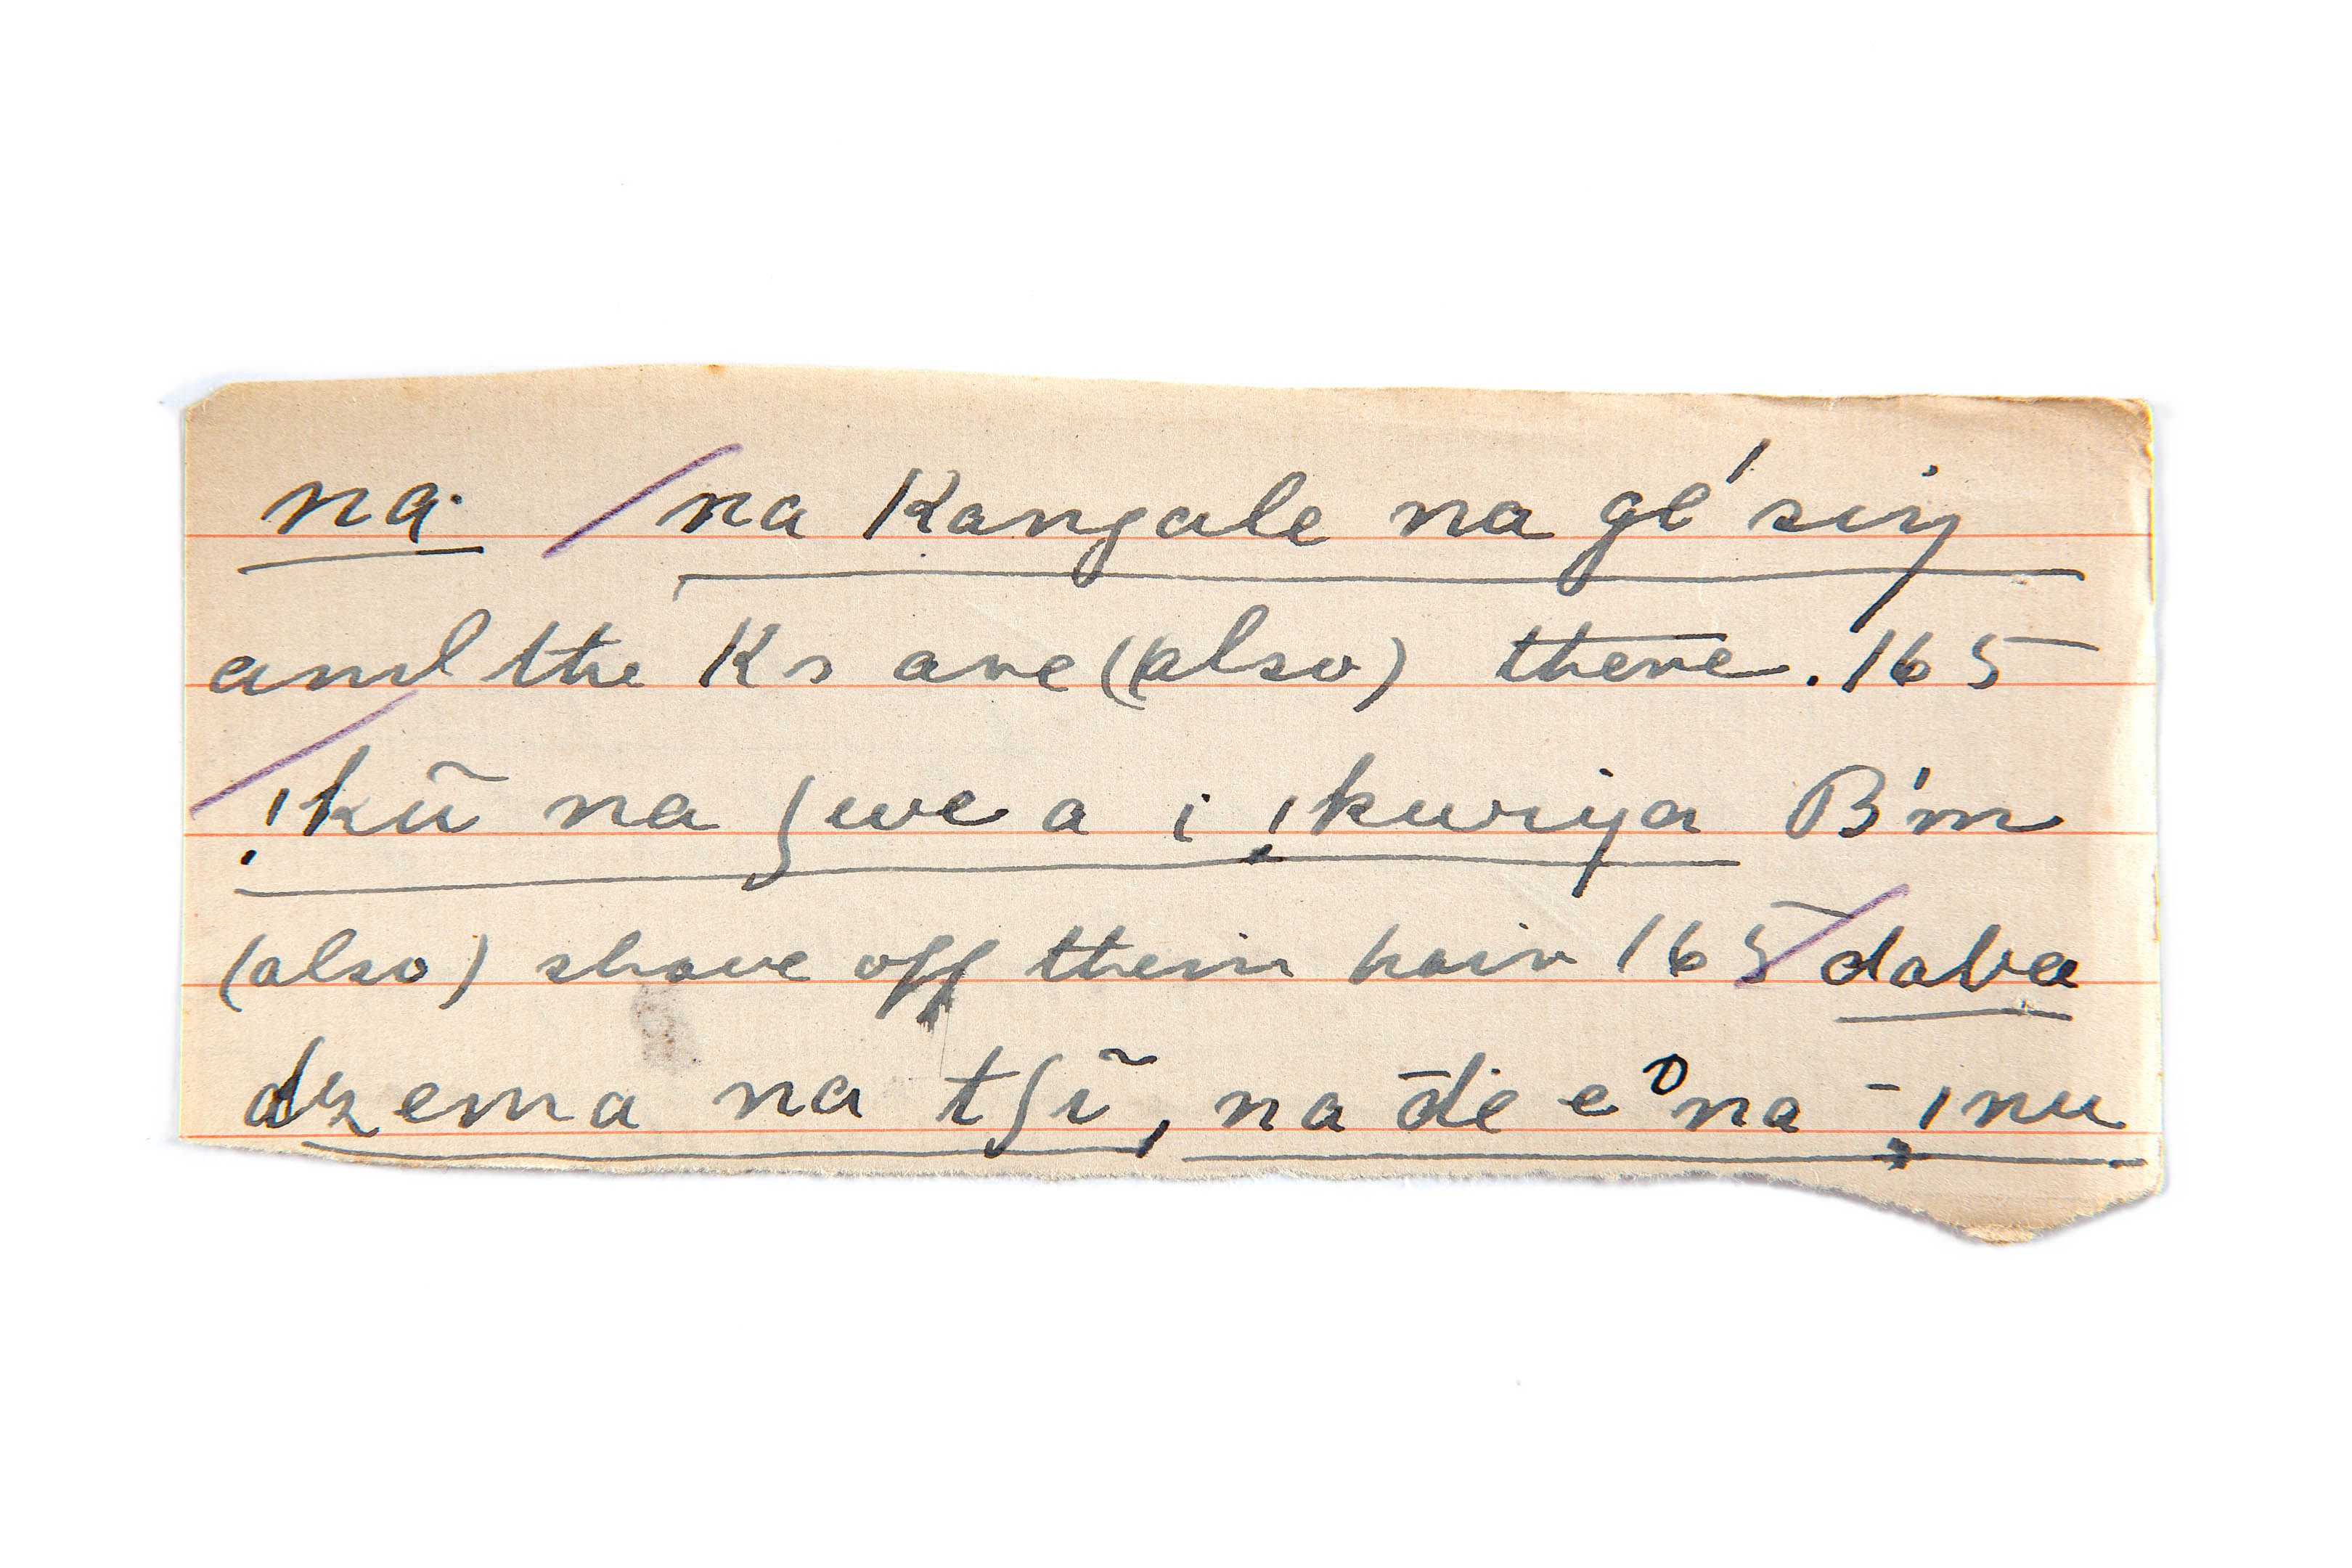 na. / na Kangale na gé siŋ
and the Ks are (also) there. 165
/ !kũ na ʃwe a i !kuriya B'm
(also) shave off their hair 165 / daba
dzema na tʃĩ, na de e na - !nu